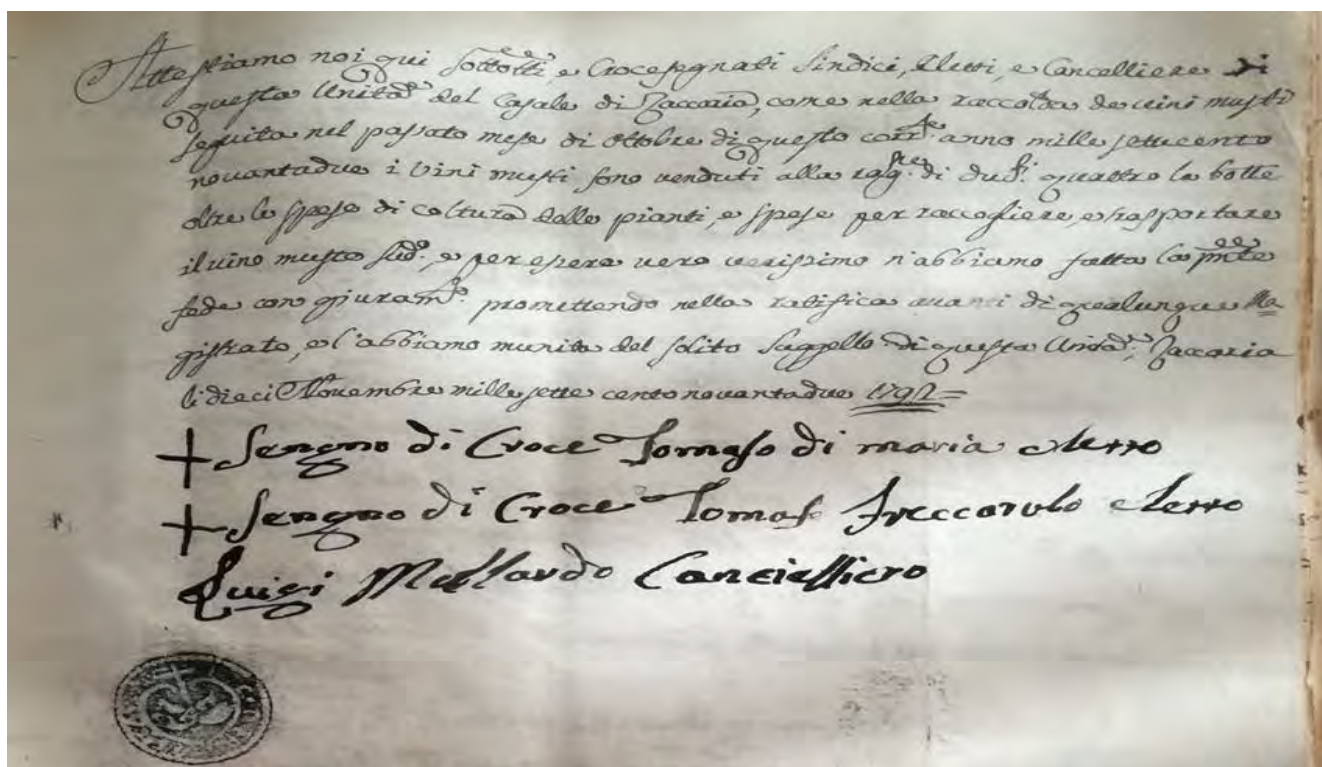 Attestiamo noi qui sottotti, e Crocesegnati Sindici, Eletti, e Cancelliere di
questa Unità del Casale di Zaccaria, come nella raccolta de vini musti
seguita nel passato mese di Ottobre di questo corrte. anno mille settecento
novantadue i vini musti sono venduti alla ragne. di duti. quattro la botte
oltre le spese di coltura delle pianti, e spese per raccogliere, e trasportare
il vino musto sudo. e per essere vero verissimo n'abbiamo fatta la pnte
fede con giuramto. promettendo nella ratifica avanti di qualunque Ma=
gistrato, e l'abbiamo munita del solito suggello di questa Unità, Zaccaria
li dieci Novembre mille sette cento novantadue 1792=
+ Sengno di Croce Tomaso di maria eletto
+ Sengno di Croce Tomaso Freccarulo eletto
Luigi Mallardo Cancielliero